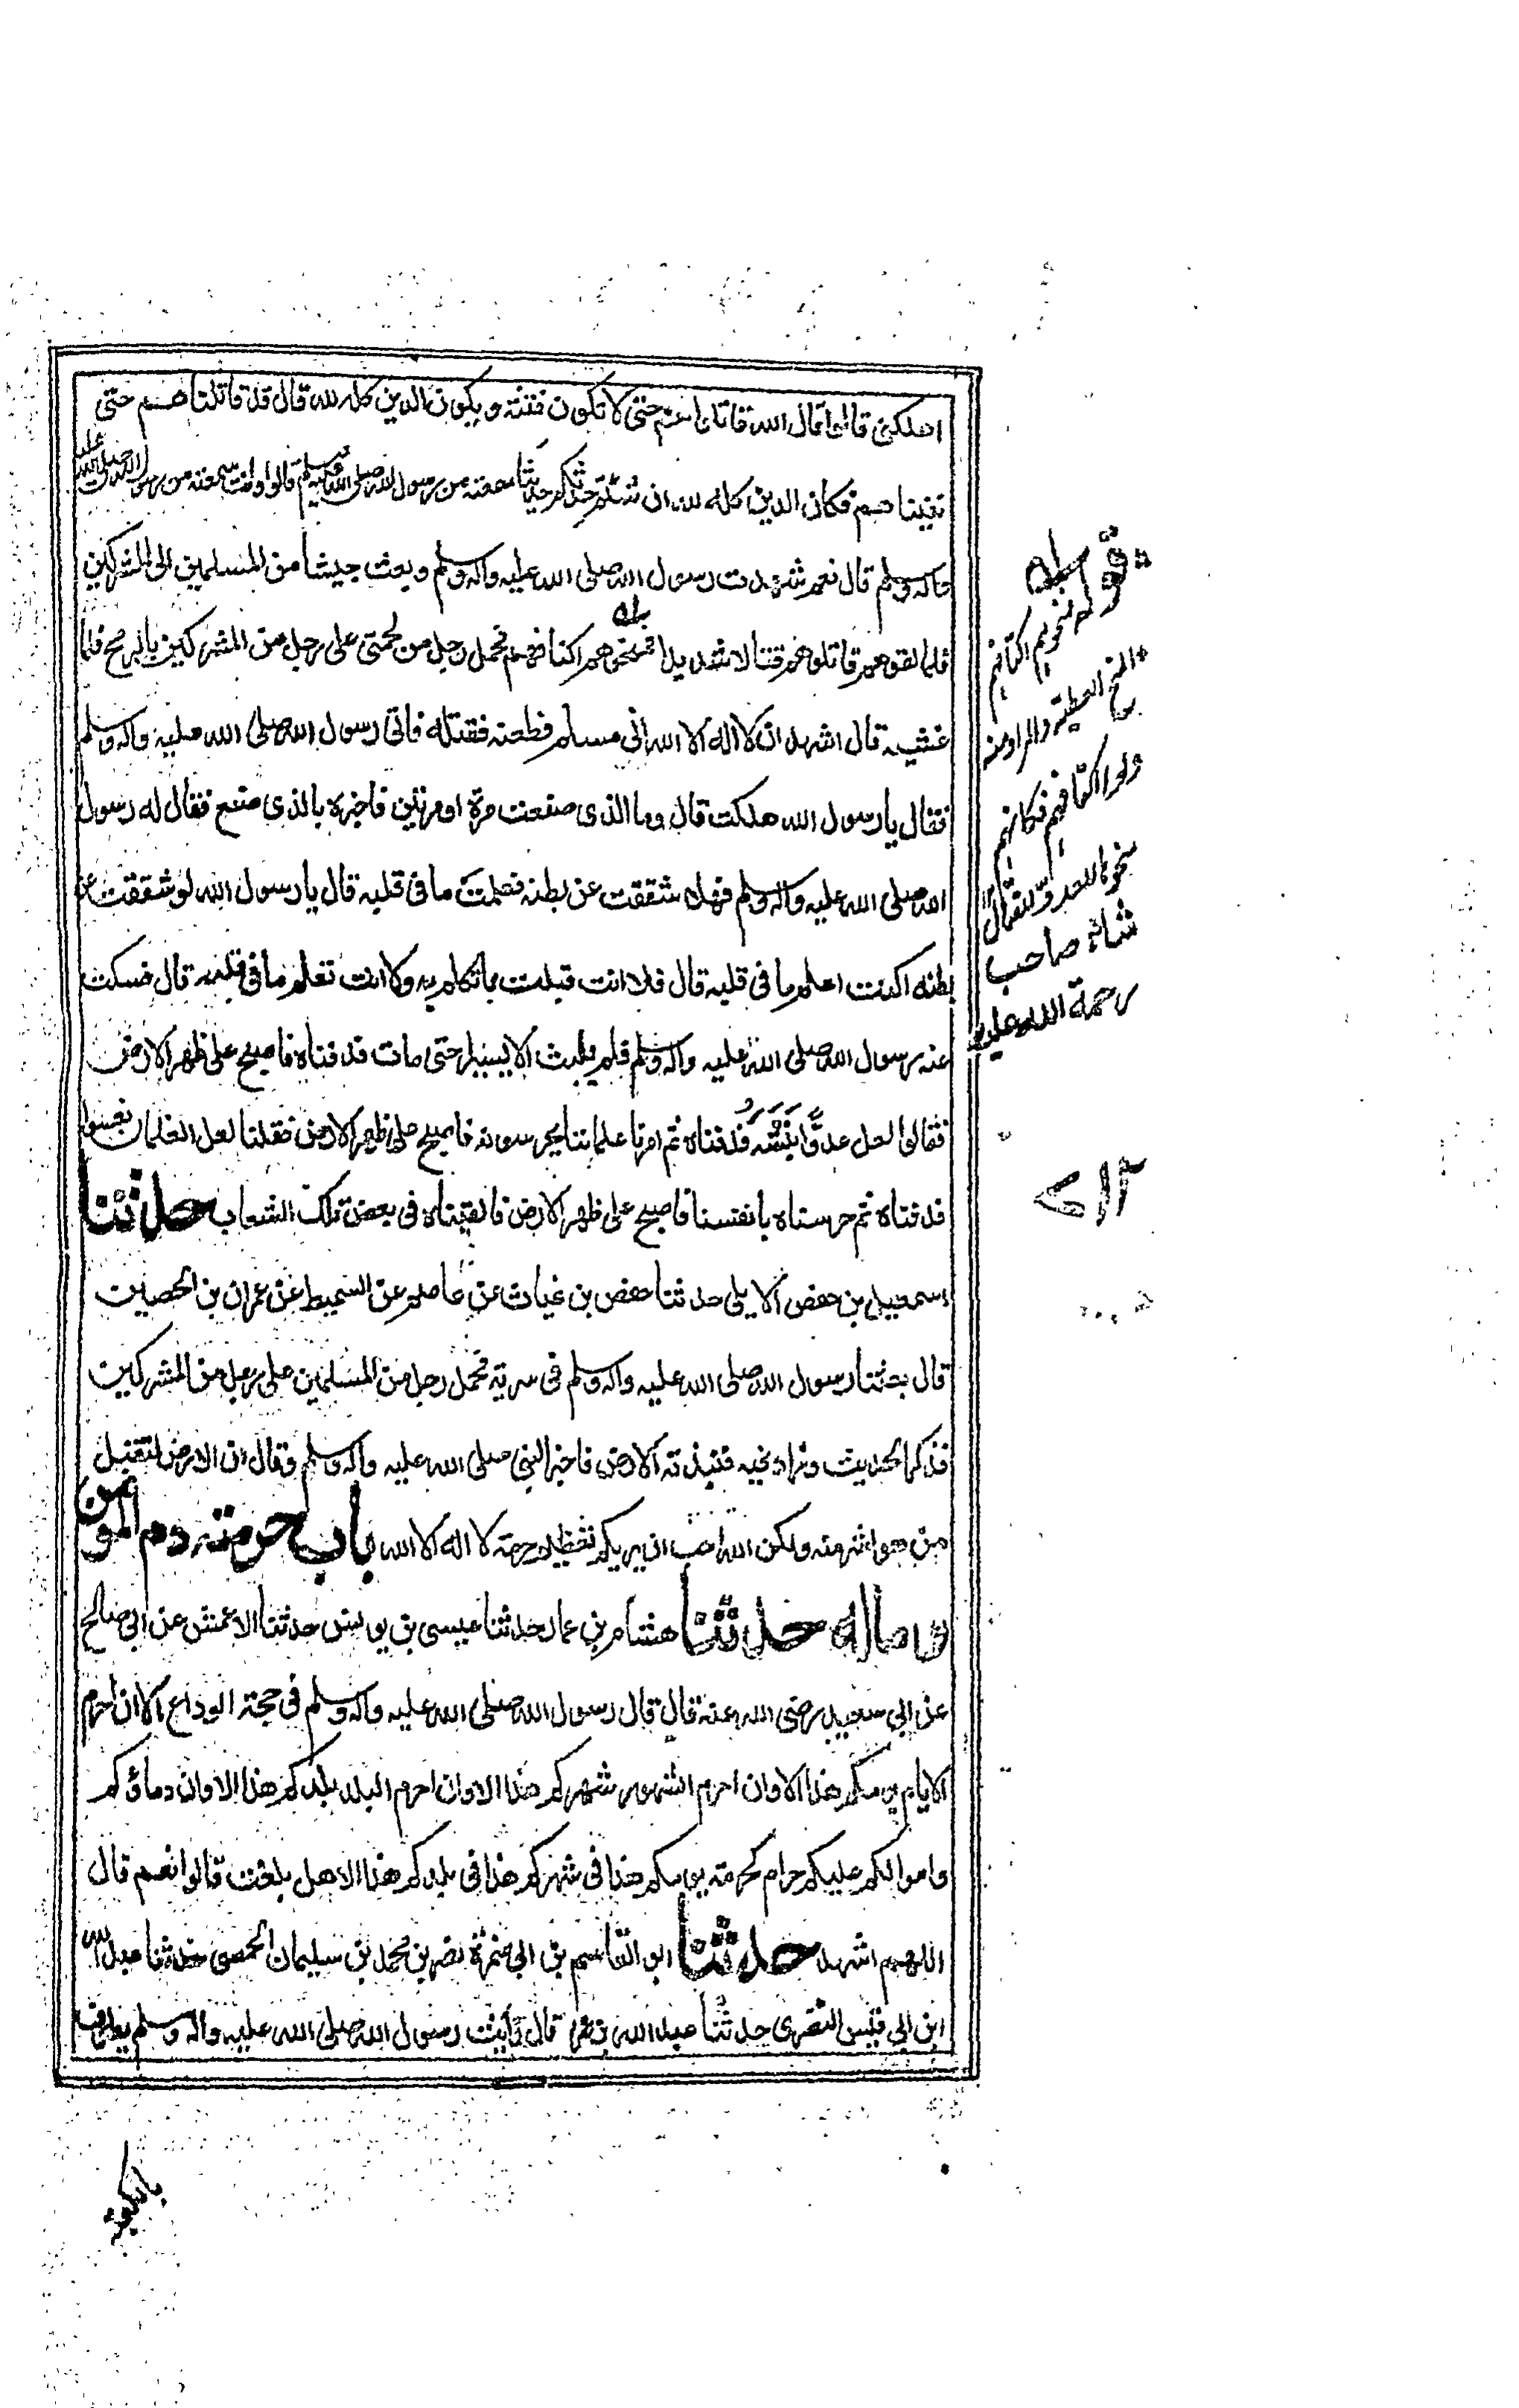 اهلكنى قالوا قال الله قاتلوا هم حتى لا تكون فتنة ويكون الدين كله لله قال قد قاتلنا هم حتى
نفينا هم فكان الدين كله لله ان شئتم حدثتكم حديثا سمعته من رسول الله صلى الله عليه وسلم قالوا وانت سمعته من رسول الله صلى الله عليه
واله وسلم قال نعم شهدت رسول الله صلى الله عليه واله وسلم وبعث جيشا من المسلمين الى المشركين
فلما لقوهم قاتلوهم قتالا شديدا فمنحوهم اكتافهم فحمل رجل من لحمتى على رجل من المشركين بالرمح فلما
غشيه قال اشهد ان لا اله الا الله انى مسلم فطعنه فقتله فاتى رسول الله صلى الله عليه واله وسلم
فقال يا رسول الله هلكت قال وما الذى صنعت مرة او مرتين فاخبره بالذى صنع فقال له رسول
الله صلى الله عليه واله وسلم فهلا شققت عن بطنه فعلمت ما فى قلبه قال يا رسول الله لو شققت عن
بطنه اكنت اعلم ما فى قلبه قال فلا انت قبلت ما تكلم به ولا انت تعلم ما فى قلبه قال فسكت
عنه رسول الله صلى الله عليه واله وسلم فلم يلبث الا يسيرا حتى مات فدفناه فاصبح على ظهر الارض
فقالوا لعل عدوا نبشه فدفناه ثم امرنا غلماننا يحرسونه فاصبح على ظهر الارض فقلنا لعل الغلمان نعسوا
فدفناه ثم حرسناه بانفسنا فاصبح على ظهر الارض فالقيناه فى بعض تلك الشعاب حدثنا
اسمعيل بن حفص الايلى حدثنا حفص بن غياث عن عاصم عن السميط عن عمران بن الحصين
قال بعثنا رسول الله صلى الله عليه واله وسلم فى سرية فحمل رجل من المسلمين على رجل من المشركين
فذكر الحديث وزاد فيه فنبذته الارض فاخبر النبى صلى الله عليه واله وسلم وقال ان الارض لتقبل
من هو اشر منه ولكن الله احب ان يريكم تعظيم حرمة لا اله الا الله باب حرمته دم المومن
وماله حدثنا هشام بن عمار حدثنا عيسى بن يونس حدثنا الاعمش عن ابى صالح
عن ابى سعيد رضى الله عنه قال قال رسول الله صلى الله عليه واله وسلم فى حجة الوداع الا ان احرم
الايام يومكم هذا الا وان احرم الشهور شهركم هذا الا وان احرم البلد بلدكم هذا الا وان دماؤكم
واموالكم عليكم حرام كحرمة يومكم هذا فى شهركم هذا فى بلدكم هذا الا هل بلغت قالوا نعم قال
اللهم اشهد حدثنا ابو القاسم بن ابى ضمرة نصر بن محمد بن سليمان الحمصى حدثنا عبد الله
ابن ابى قيس النصرى حدثنا عبد الله بن عمر قال رايت رسول الله صلى الله عليه واله وسلم يطوف
قوله فمنحوهم اكتافهم
المنح العطية والمراد منه
ولوا اكتافهم فكانهم
منحوا للعدو للقتال
شاه صاحب
رحمة الله عليه
١٢
بالكعبة